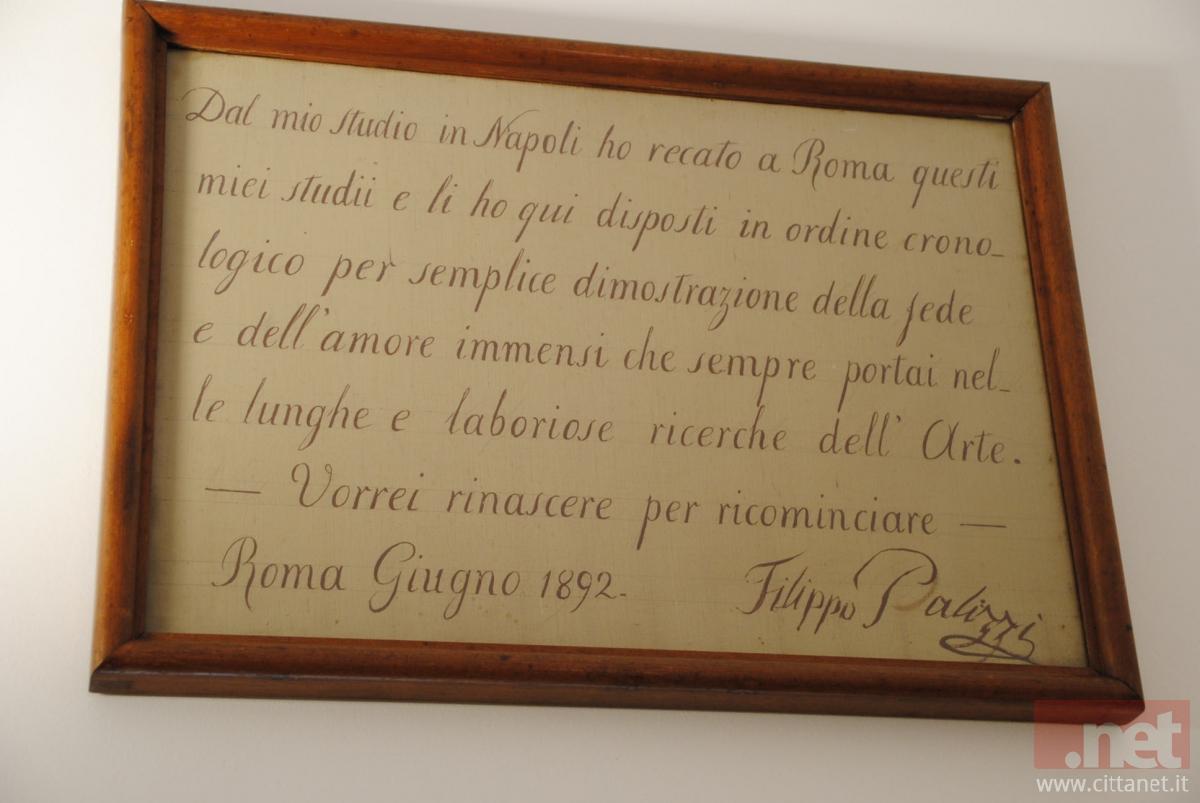 Dal mio studio in Napoli ho recato a Roma questi
miei studii e li ho qui disposti in ordine crono_
logico per semplice dimostrazione della fede
e dell'amore immensi che sempre portai nel_
le lunghe e laboriose ricerche dell' Arte.
— Vorrei rinascere per ricominciare —
Roma Giugno 1892. Filippo Palizzi
.net
www.cittanet.it